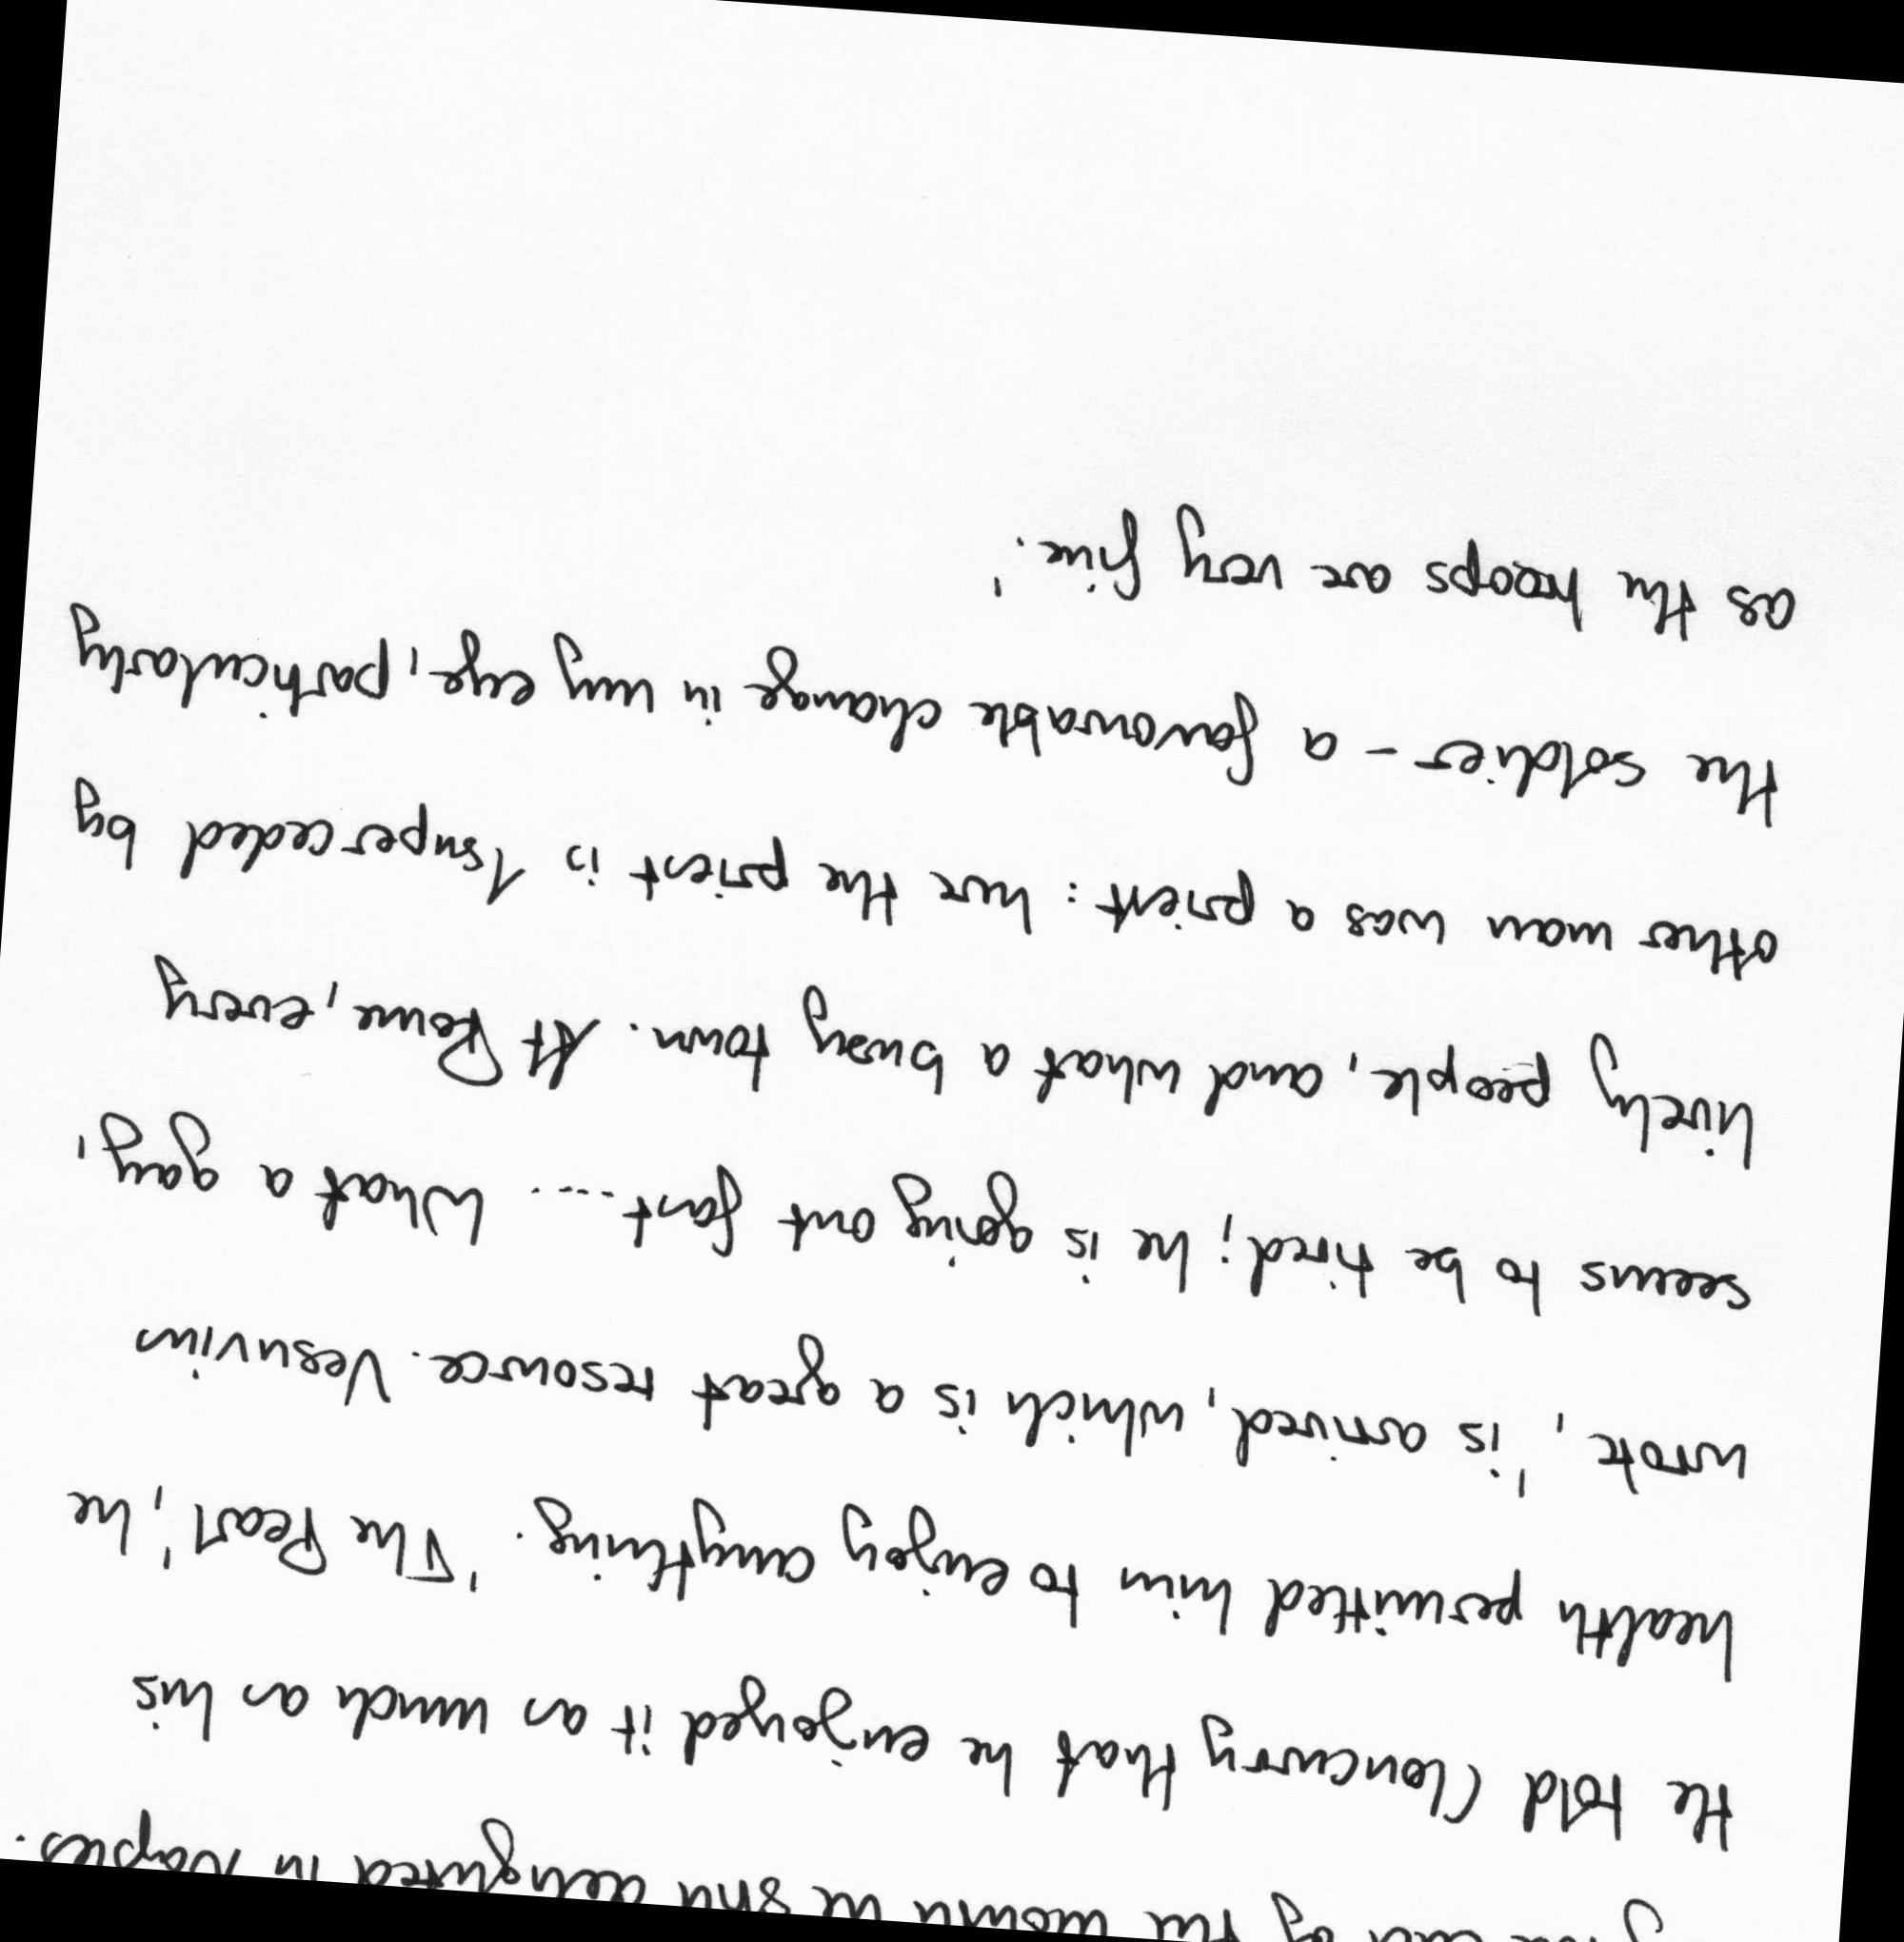 the end of the month he still delighted in Naples.
He told Cloncurry that he enjoyed it as much as his
health permitted him to enjoy anything. 'The Pearl', he
wrote, 'is arrived, which is a great resource. Vesuvius
seems to be tired; he is going out fast .... What a gay,
lively people, and what a busy town. At Rome, every
other man was a priest: here the priest is superceded by
the soldier - a favourable change in my eye, particularly
as the troops are very fine.'